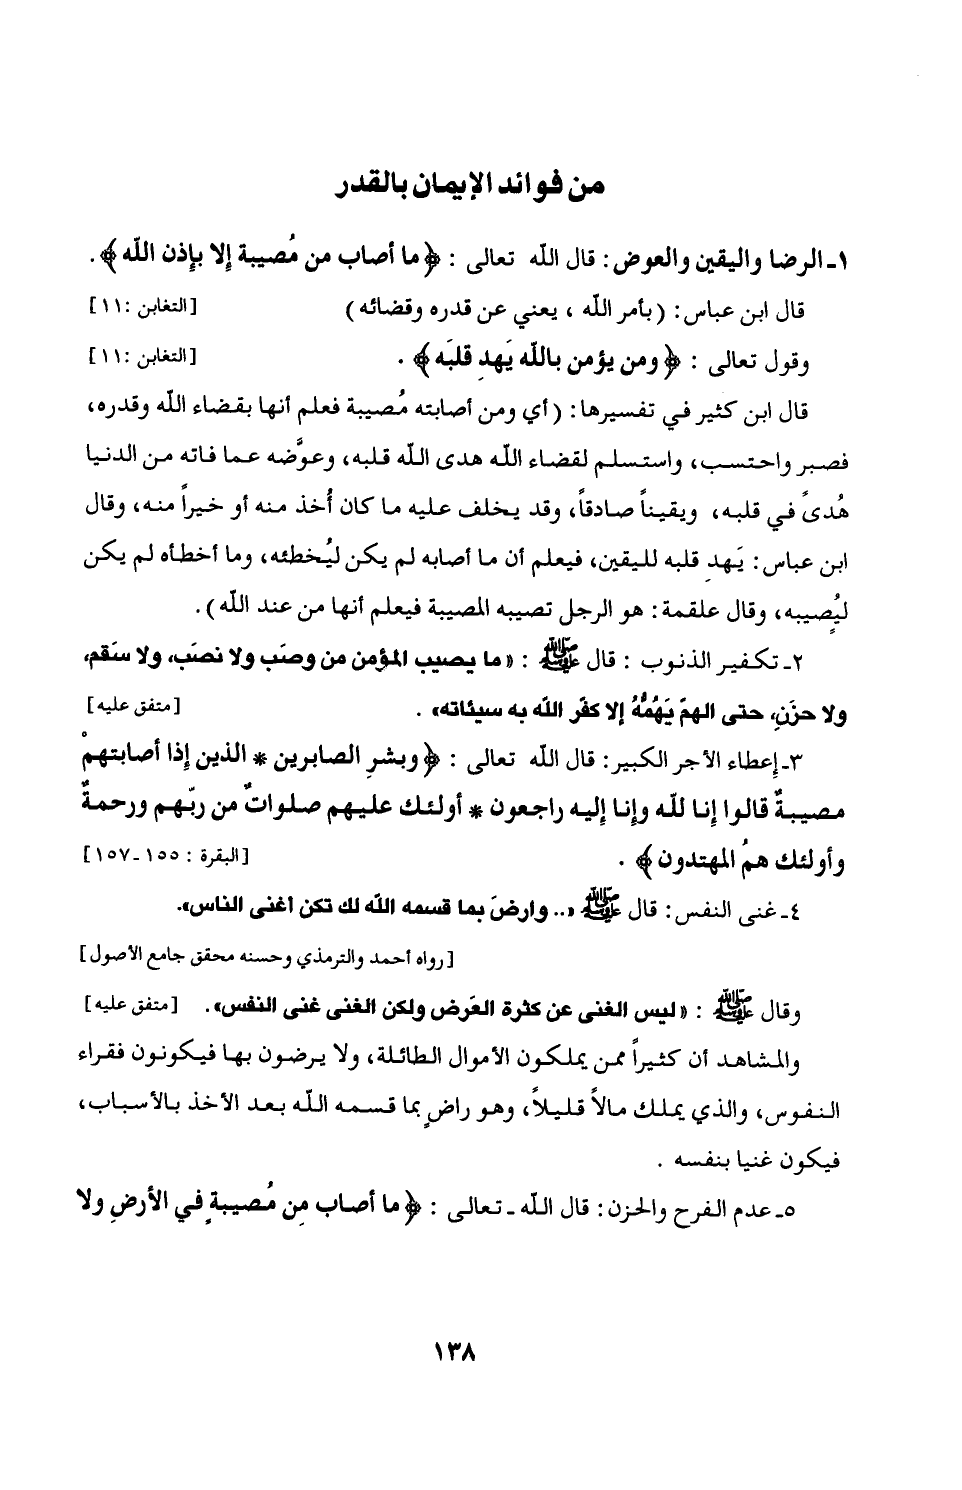 من فوائد الإيمان بالقدر
١ـ الرضا واليقين والعوض: قال الله تعالى : ﴿ ما أصاب من مُصيبة إلا بإذن الله ﴾ .
قال ابن عباس: (بأمر الله ، يعني عن قدره وقضائه) [التغابن :١١]
وقول تعالى : ﴿ ومن يؤمن بالله يَهدِ قلبَه ﴾ . [التغابن :١١]
قال ابن كثير في تفسيرها: (أي ومن أصابته مُصيبة فعلم أنها بقضاء الله وقدره،
فصبر واحتسب، واستسلم لقضاء الله هدى الله قلبه، وعوَّضه عما فاته من الدنيا
هُدىً في قلبه، ويقيناً صادقاً، وقد يخلف عليه ما كان أُخذ منه أو خيراً منه، وقال
ابن عباس: يَهدِ قلبه لليقين، فيعلم أن ما أصابه لم يكن ليُخطئه، وما أخطأه لم يكن
ليُصيبه، وقال علقمة: هو الرجل تصيبه المصيبة فيعلم أنها من عند الله).
٢ـ تكفير الذنوب : قال ﷺ : « ما يصيب المؤمن من وصَب ولا نصَب، ولا سَقم،
ولا حزَنٍ، حتى الهمّ يَهُمُّهُ إلا كفّر الله به سيئاته» . [متفق عليه]
٣ـ إعطاء الأجر الكبير: قال الله تعالى : ﴿ وبشرِ الصابرين * الذين إذا أصابتهمْ
مصيبةٌ قالوا إنا لله وإنا إليه راجعون * أولئك عليهم صلواتٌ من ربّهم ورحمةٌ
وأولئك همُ المهتدون ﴾ . [البقرة : ١٥٥ـ١٥٧]
٤ـ غنى النفس: قال ﷺ «.. وارضَ بما قسمه الله لك تكن أغنى الناس».
[رواه أحمد والترمذي وحسنه محقق جامع الأصول]
وقال ﷺ : « ليس الغنى عن كثرة العَرض ولكن الغنى غنى النفس» . [متفق عليه]
والمشاهد أن كثيراً ممن يملكون الأموال الطائلة، ولا يرضون بها فيكونون فقراء
النفوس، والذي يملك مالاً قليلاً، وهو راضٍ بما قسمه الله بعد الأخذ بالأسباب،
فيكون غنيا بنفسه .
٥ـ عدم الفرح والحزن: قال الله ـ تعالى : ﴿ ما أصاب مِن مُصيبةٍ في الأرضِ ولا
١٣٨